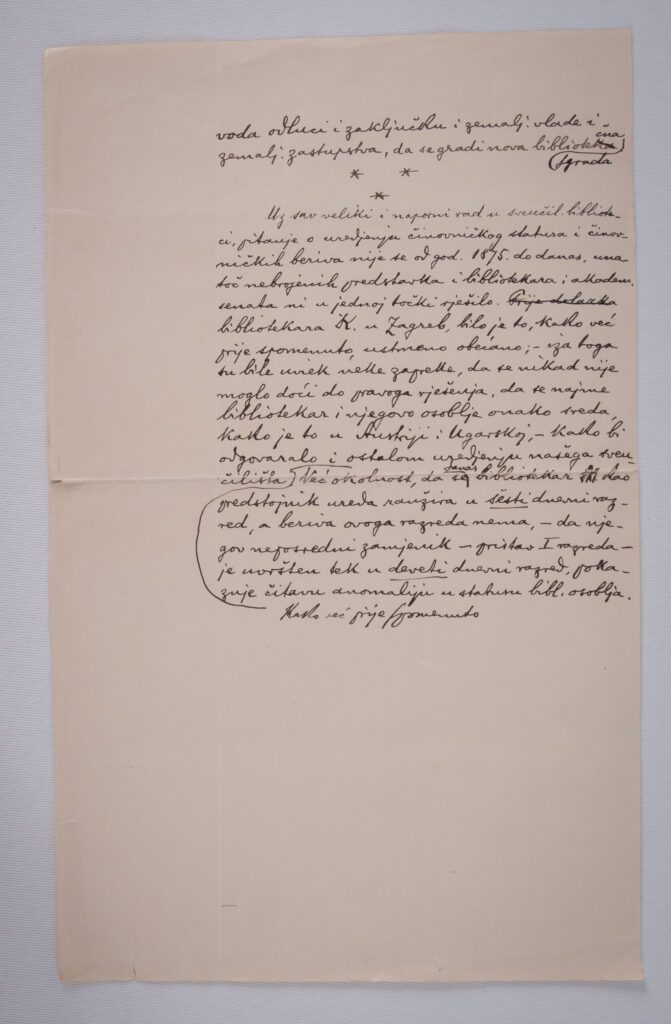 voda odluci i zaključku i zemalj. vlade i
zemalj. zastupstva, da se gradi nova bibliotečna
zgrada
* *
*
Uz sav veliki i naporni rad u sveučil. bibliote-
ci, pitanje o uredjenju činovničkog statura i činov-
ničkih beriva nije se od god. 1875. do danas, una-
toč nebrojenih predstavka i bibliotekara i akadem.
senata ni u jednoj točki rješilo. Prije dolazka
bibliotekara K. u Zagreb, bilo je to, kako već
prije spomenuto, ustmeno obećano; – iza toga
su bile uviek neke zapreke, da se nikad nije
moglo doći do pravoga rješenja, da se najme
bibliotekar i njegovo osoblje onako sreda,
kako je to u Austriji i Ugarskoj, – kako bi
odgovaralo i ostalom uredjenju našega sveu-
čilišta. Već okolnost, da se danas bibliotekar kao
predstojnik ureda ranžira u šesti dnevni raz-
red, a beriva ovoga razreda nema, – da nje-
gov neposredni zamjenik – pristav I razreda –
je uvršten tek u deveti dnevni razred, poka-
zuje čitavu anomaliju u statusu bibl. osoblja.
Kako već prije spomenuto